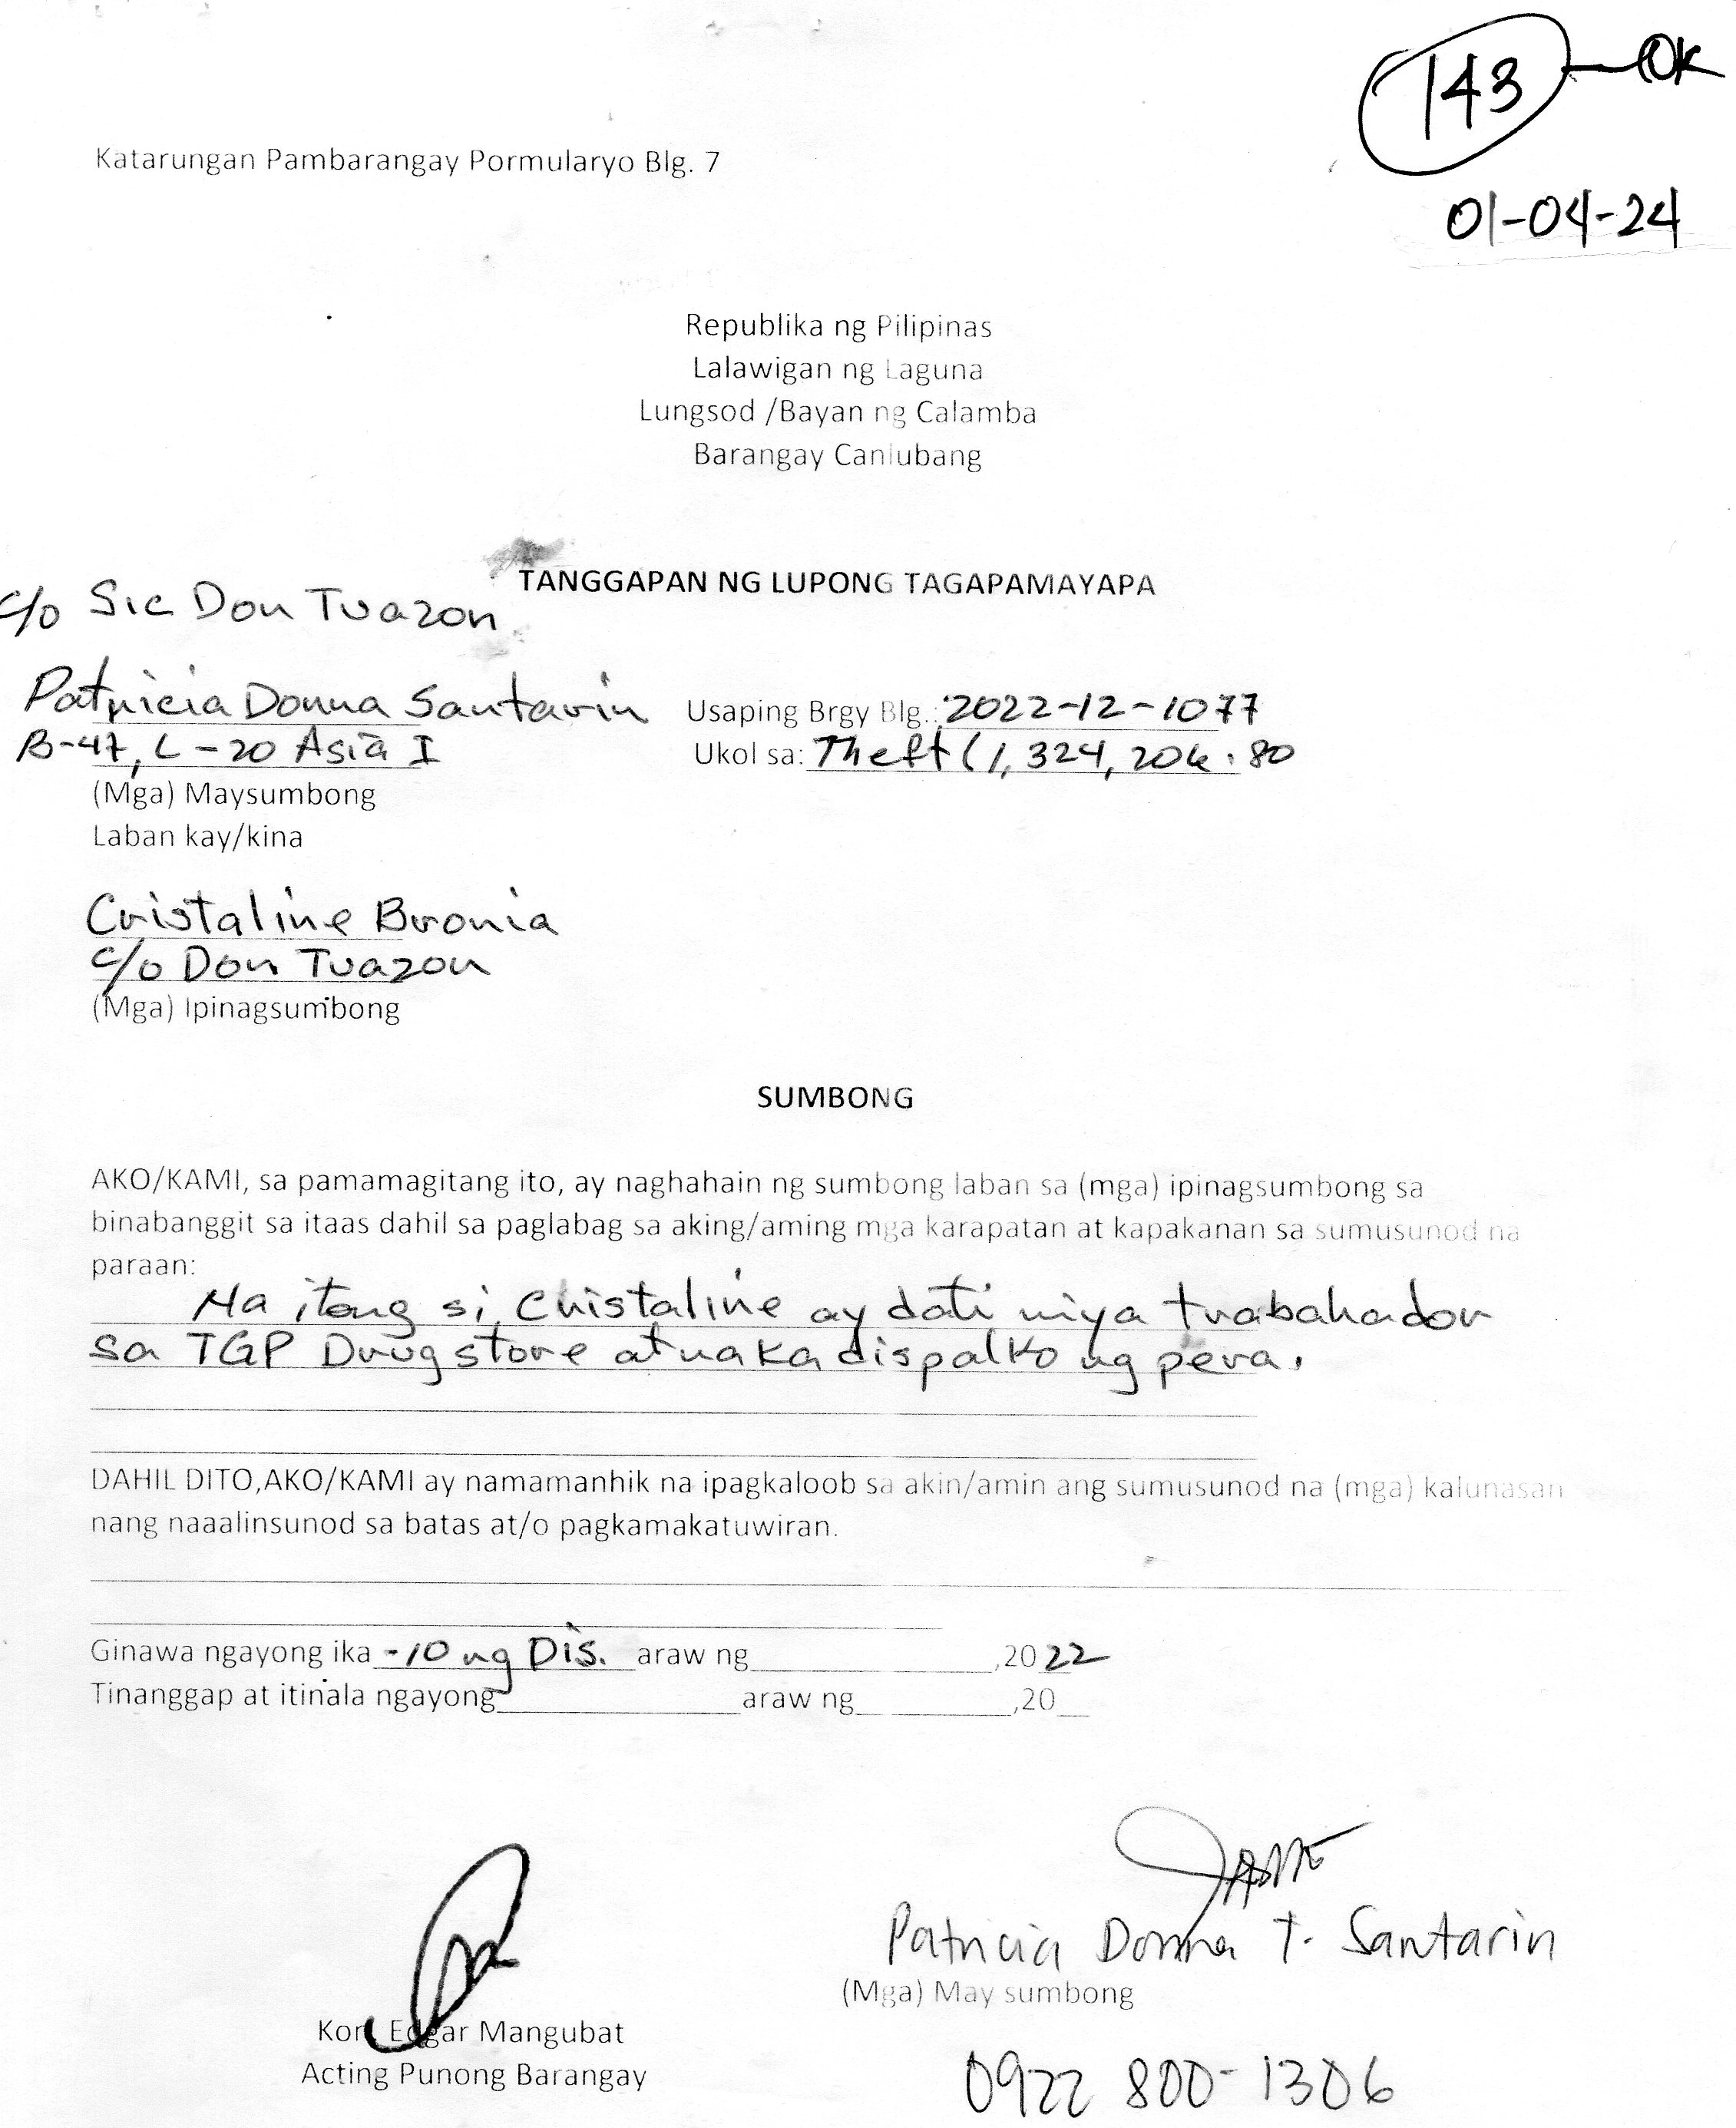 143 OK
01-04-24
Katarungan Pambarangay Pormularyo Blg. 7
Republika ng Pilipinas
Lalawigan ng Laguna
Lungsod /Bayan ng Calamba
Barangay Canlubang
TANGGAPAN NG LUPONG TAGAPAMAYAPA
c/o Sic Don Tuazon
Patricia Donna Santarin Usaping Brgy Blg.: 2022-12-1077
B-47, L-20 Asia I Ukol sa: Theft (1,324,206.80
(Mga) Maysumbong
Laban kay/kina
Cristaline Bronia
c/o Don Tuazon
(Mga) Ipinagsumbong
SUMBONG
AKO/KAMI, sa pamamagitang ito, ay naghahain ng sumbong laban sa (mga) ipinagsumbong sa
binabanggit sa itaas dahil sa paglabag sa aking/aming mga karapatan at kapakanan sa sumusunod na
paraan:
Na itong si Cristaline ay dati niya trabahador
sa TGP Drugstore at naka dispalko ng pera.
DAHIL DITO,AKO/KAMI ay namamanhik na ipagkaloob sa akin/amin ang sumusunod na (mga) kalunasan
nang naaalinsunod sa batas at/o pagkamakatuwiran.
Ginawa ngayong ika -10 ng Dis. araw ng ,20 22
Tinanggap at itinala ngayong araw ng ,20
Patricia Donna T. Santarin
(Mga) May sumbong
Kon. Edgar Mangubat
Acting Punong Barangay
0922 800-1306